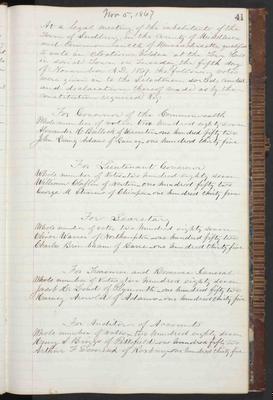 Nov 5, 1867
41
At a legal meeting of the inhabitants of the
Town of Sudbury, in the County of Middlesex
and Commonwealth of Massachusetts, qualified
to vote in Elections, holden at the Town House
in said Town on Tuesday the fifth day
of November A.D. 1867 the following votes
were given in to the Selectmen sorted, counted
and declaration thereof made as by the
Constitution required Viz
For Governor of the Commonwealth
Whole number of votes two hundred eighty seven
Alexander H. Bullock of Worcester one hundred fifty two
John Quincy Adams of Quincy one hundred thirty five
For Lieutenant Governor
Whole number of Votes two hundred eighty seven
William Claflin of Newton one hundred fifty two
George M. Stearns of Chicopee one hundred thirty five
For Secretary
Whole number of votes two hundred eighty seven
Oliver Warner of Northampton one hundred fifty two
Charles Brimblecom of Barre one hundred thirty five
For Treasurer and Receiver General
Whole number of Votes two hundred eighty seven
Jacob H. Loud of Plymouth one hundred fifty two
Harvey Arnold of Adams one hundred thirty five
For Auditor of Accounts
Whole number of votes two hundred eighty seven
Henry S. Briggs of Pittsfield one hundred fifty two
Arthur F. of Roxbury one hundred thirty five